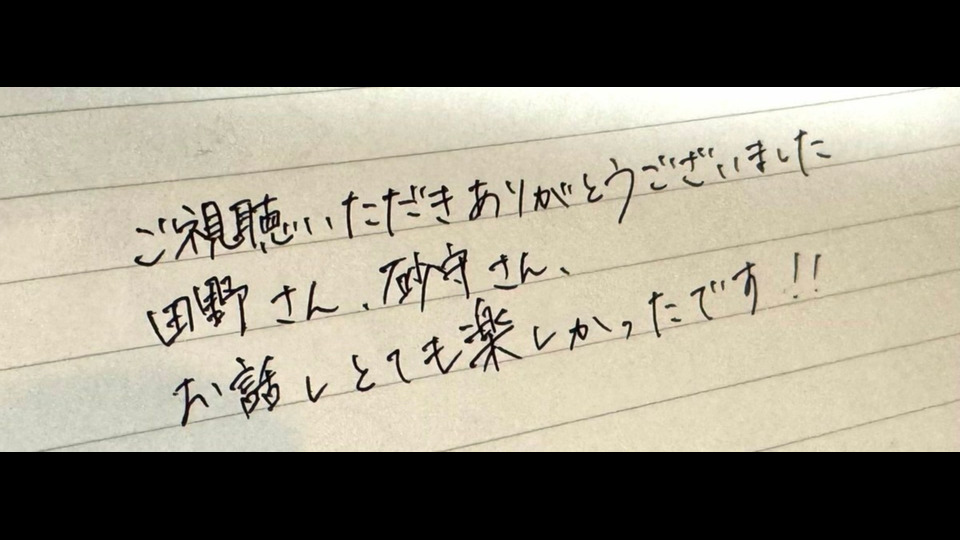 ご視聴いただきありがとうございました
田野さん、砂守さん、
お話しとても楽しかったです!!